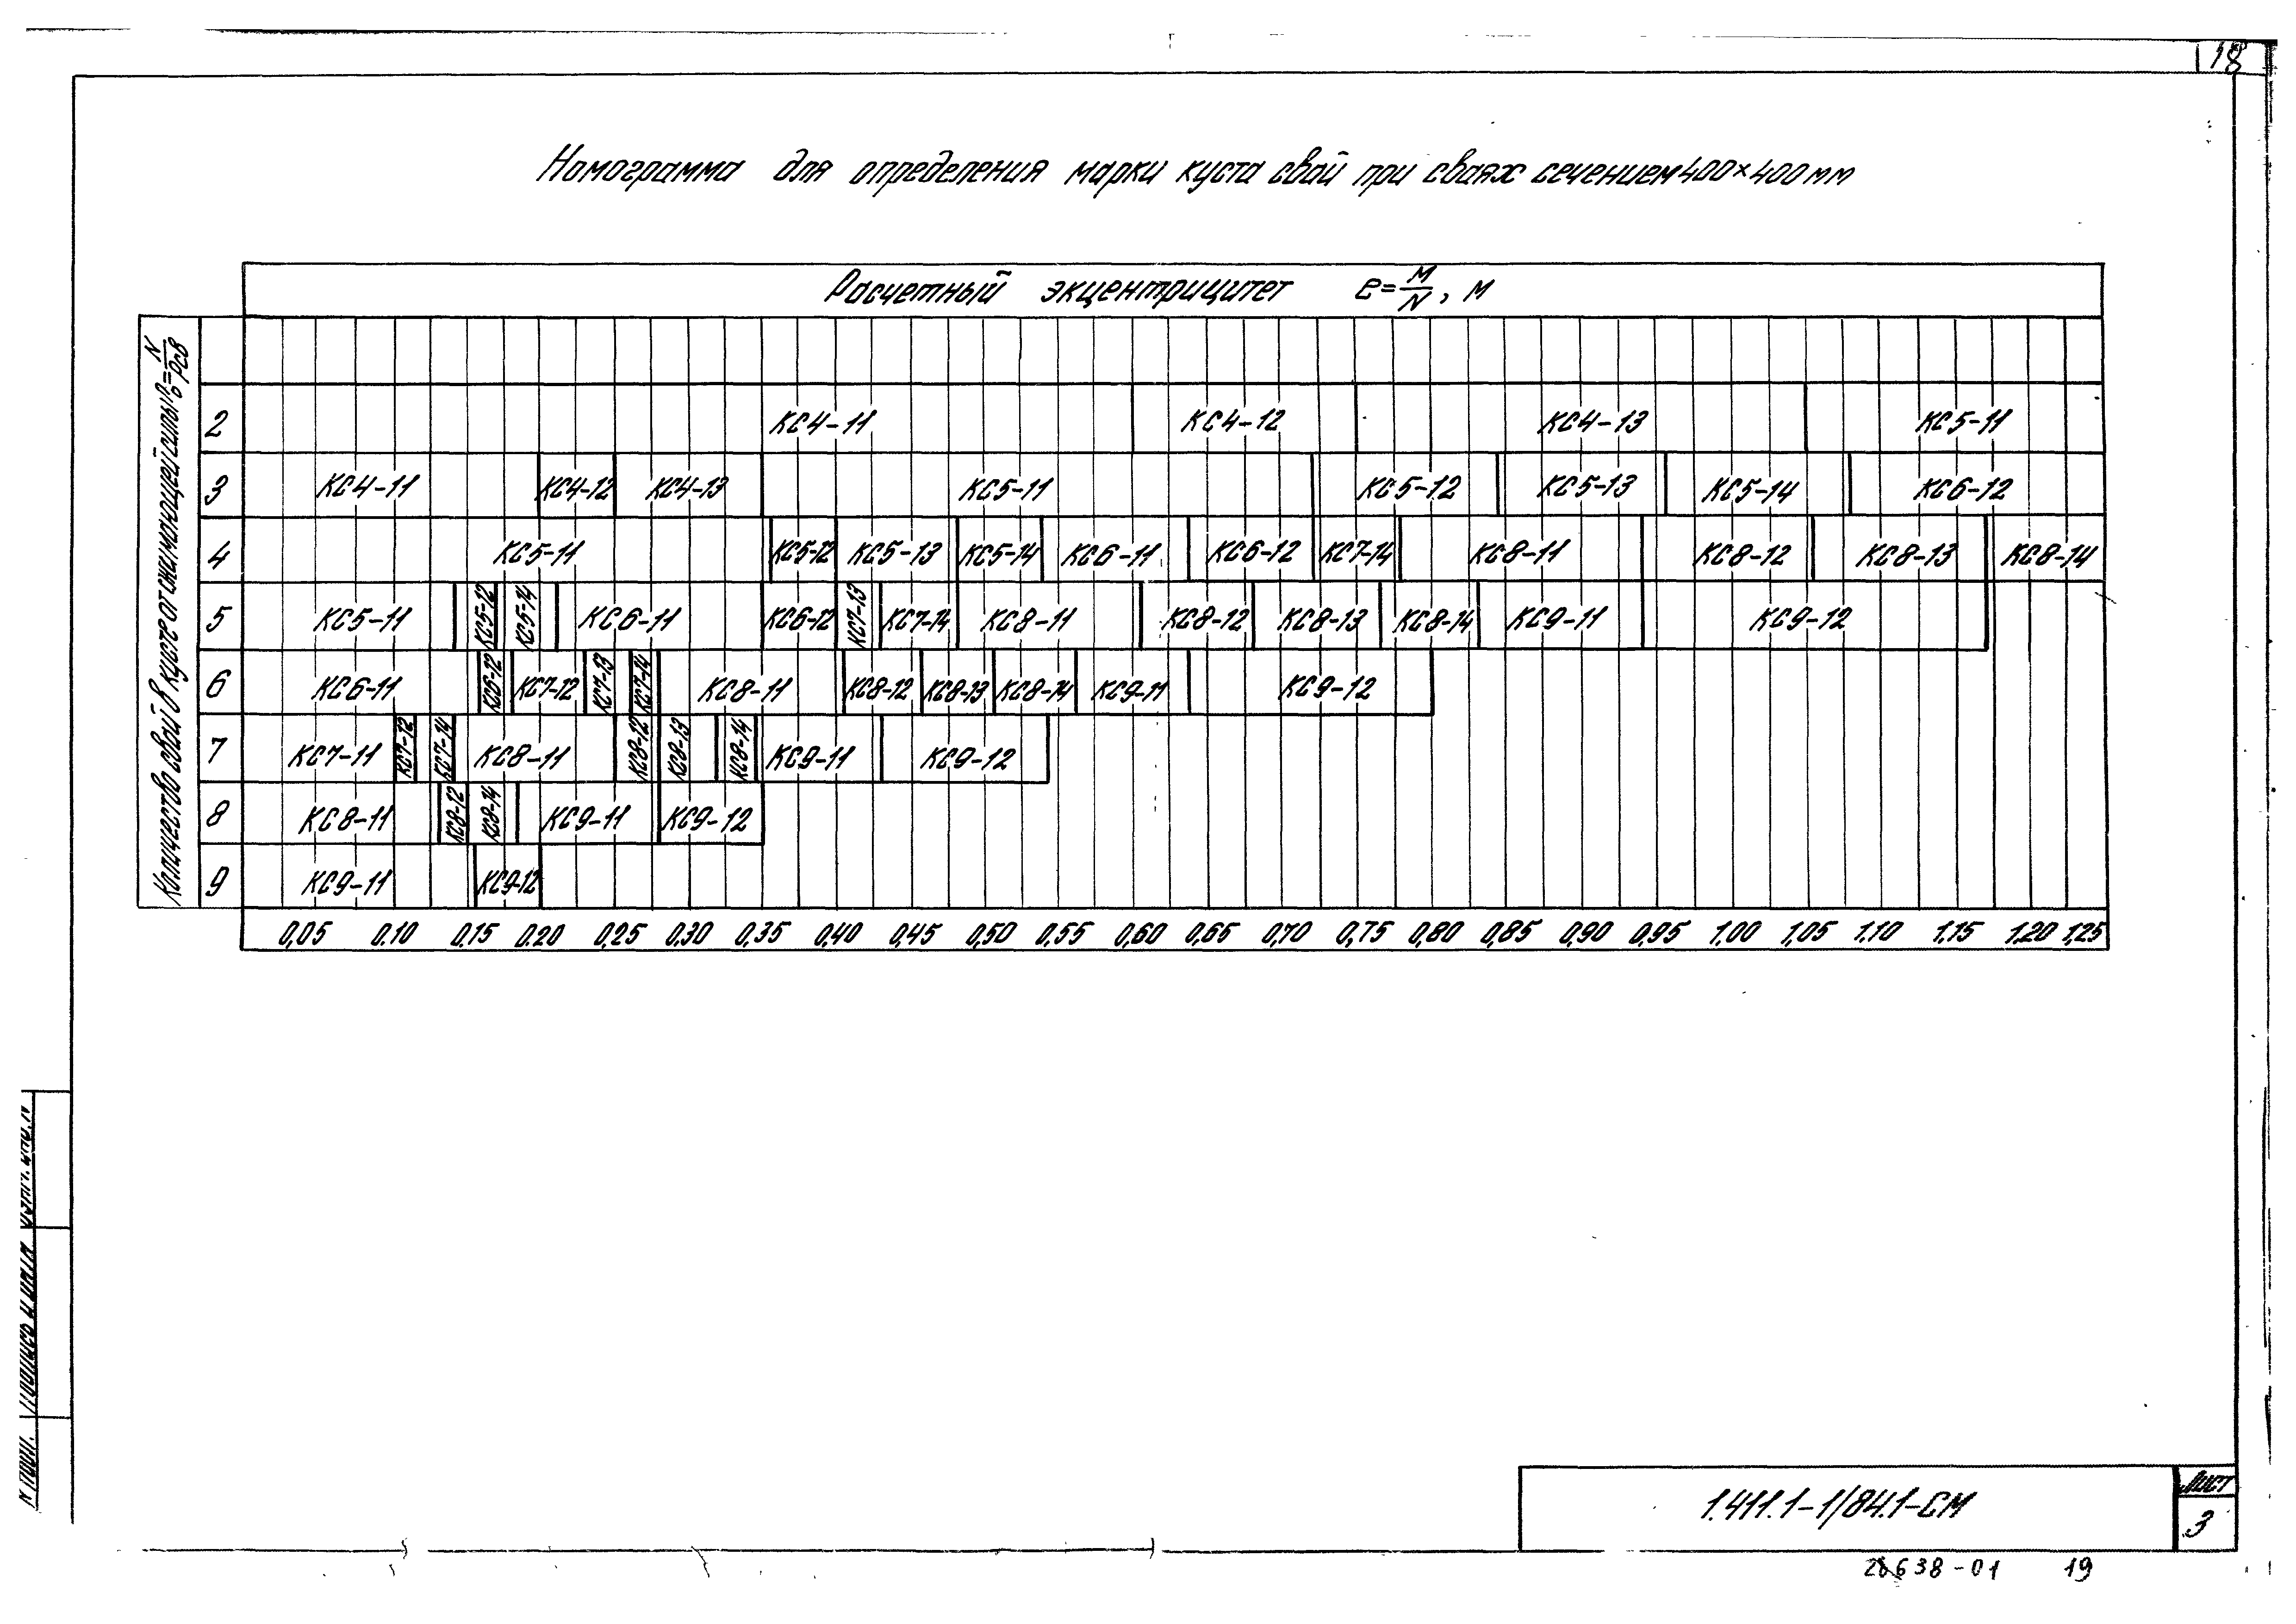 18
Номограмма для определения марки куста свай при сваях сечением 400×400 мм
Расчетный эксцентрицитет e=M/N, м
Количество свай в кусте от сжимающей силы n₀=N/Рсв
2 КС4-11 КС4-12 КС4-13 КС5-11
3 КС4-11 КС4-12 КС4-13 КС5-11 КС5-12 КС5-13 КС5-14 КС6-12
4 КС5-11 КС5-12 КС5-13 КС5-14 КС6-11 КС6-12 КС7-14 КС8-11 КС8-12 КС8-13 КС8-14
5 КС5-11 КС5-12 КС5-14 КС6-11 КС6-12 КС7-13 КС7-14 КС8-11 КС8-12 КС8-13 КС8-14 КС9-11 КС9-12
6 КС6-11 КС6-12 КС7-12 КС7-13 КС7-14 КС8-11 КС8-12 КС8-13 КС8-14 КС9-11 КС9-12
7 КС7-11 КС7-12 КС7-14 КС8-11 КС8-12 КС8-13 КС8-14 КС9-11 КС9-12
8 КС8-11 КС8-12 КС8-14 КС9-11 КС9-12
9 КС9-11 КС9-12
0,05 0.10 0,15 0.20 0,25 0,30 0,35 0,40 0,45 0,50 0,55 0,60 0,65 0,70 0,75 0,80 0,85 0,90 0,95 1.00 1,05 1,10 1,15 1,20 1,25
1.411.1-1/84.1-СМ
Лист
3
19